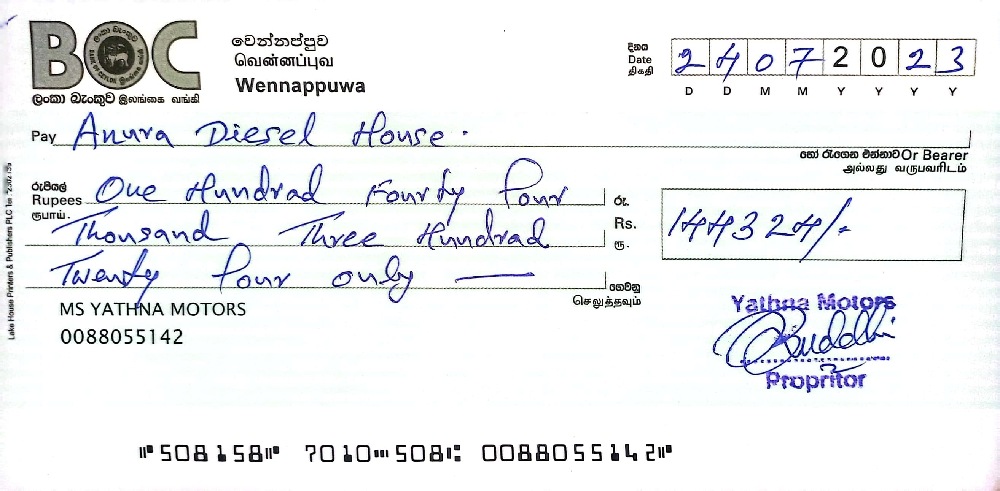 BOC
ලංකා බැංකුව இலங்கை வங்கி
වෙන්නප්පුව
வென்னப்புவ
Wennappuwa
දිනය
Date
திகதி
2 4 0 7 2 0 2 3
D D M M Y Y Y Y
Pay Anura Diesel House.
හෝ රැගෙන එන්නාට Or Bearer
அல்லது வருபவரிடம்
රුපියල්
Rupees
ரூபாய்.
One Hundrad Fourty Four
Thousand Three Hundrad
Twenty four only —
රු.
Rs.
ரூ.
144324/-
ගෙවනු
செலுத்தவும்
MS YATHNA MOTORS
0088055142
Yathna Motors
Propritor
Lake House Printers & Publishers PLC
⑈508158⑈ 7010⑉508⑆ 0088055142⑈